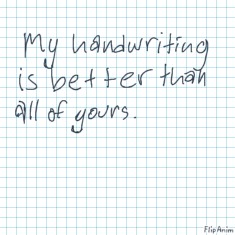 My handwriting
is better than
all of yours.
FlipAnim